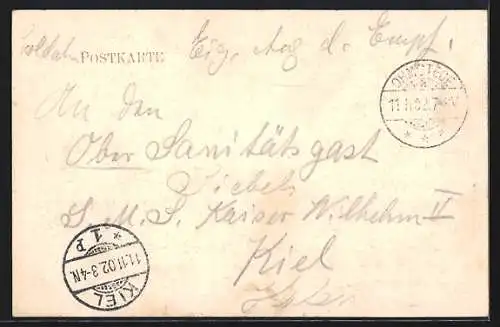 Soldat. POSTKARTE Eig. Ang. d. Empf.
OHMSTEDE
11.11.02.7-8V.
An den
Ober Sanitätsgast
Siebels
S. M. S. Kaiser Wilhelm II
Kiel
KIEL
11.11.02.3-4N.
* 1 P